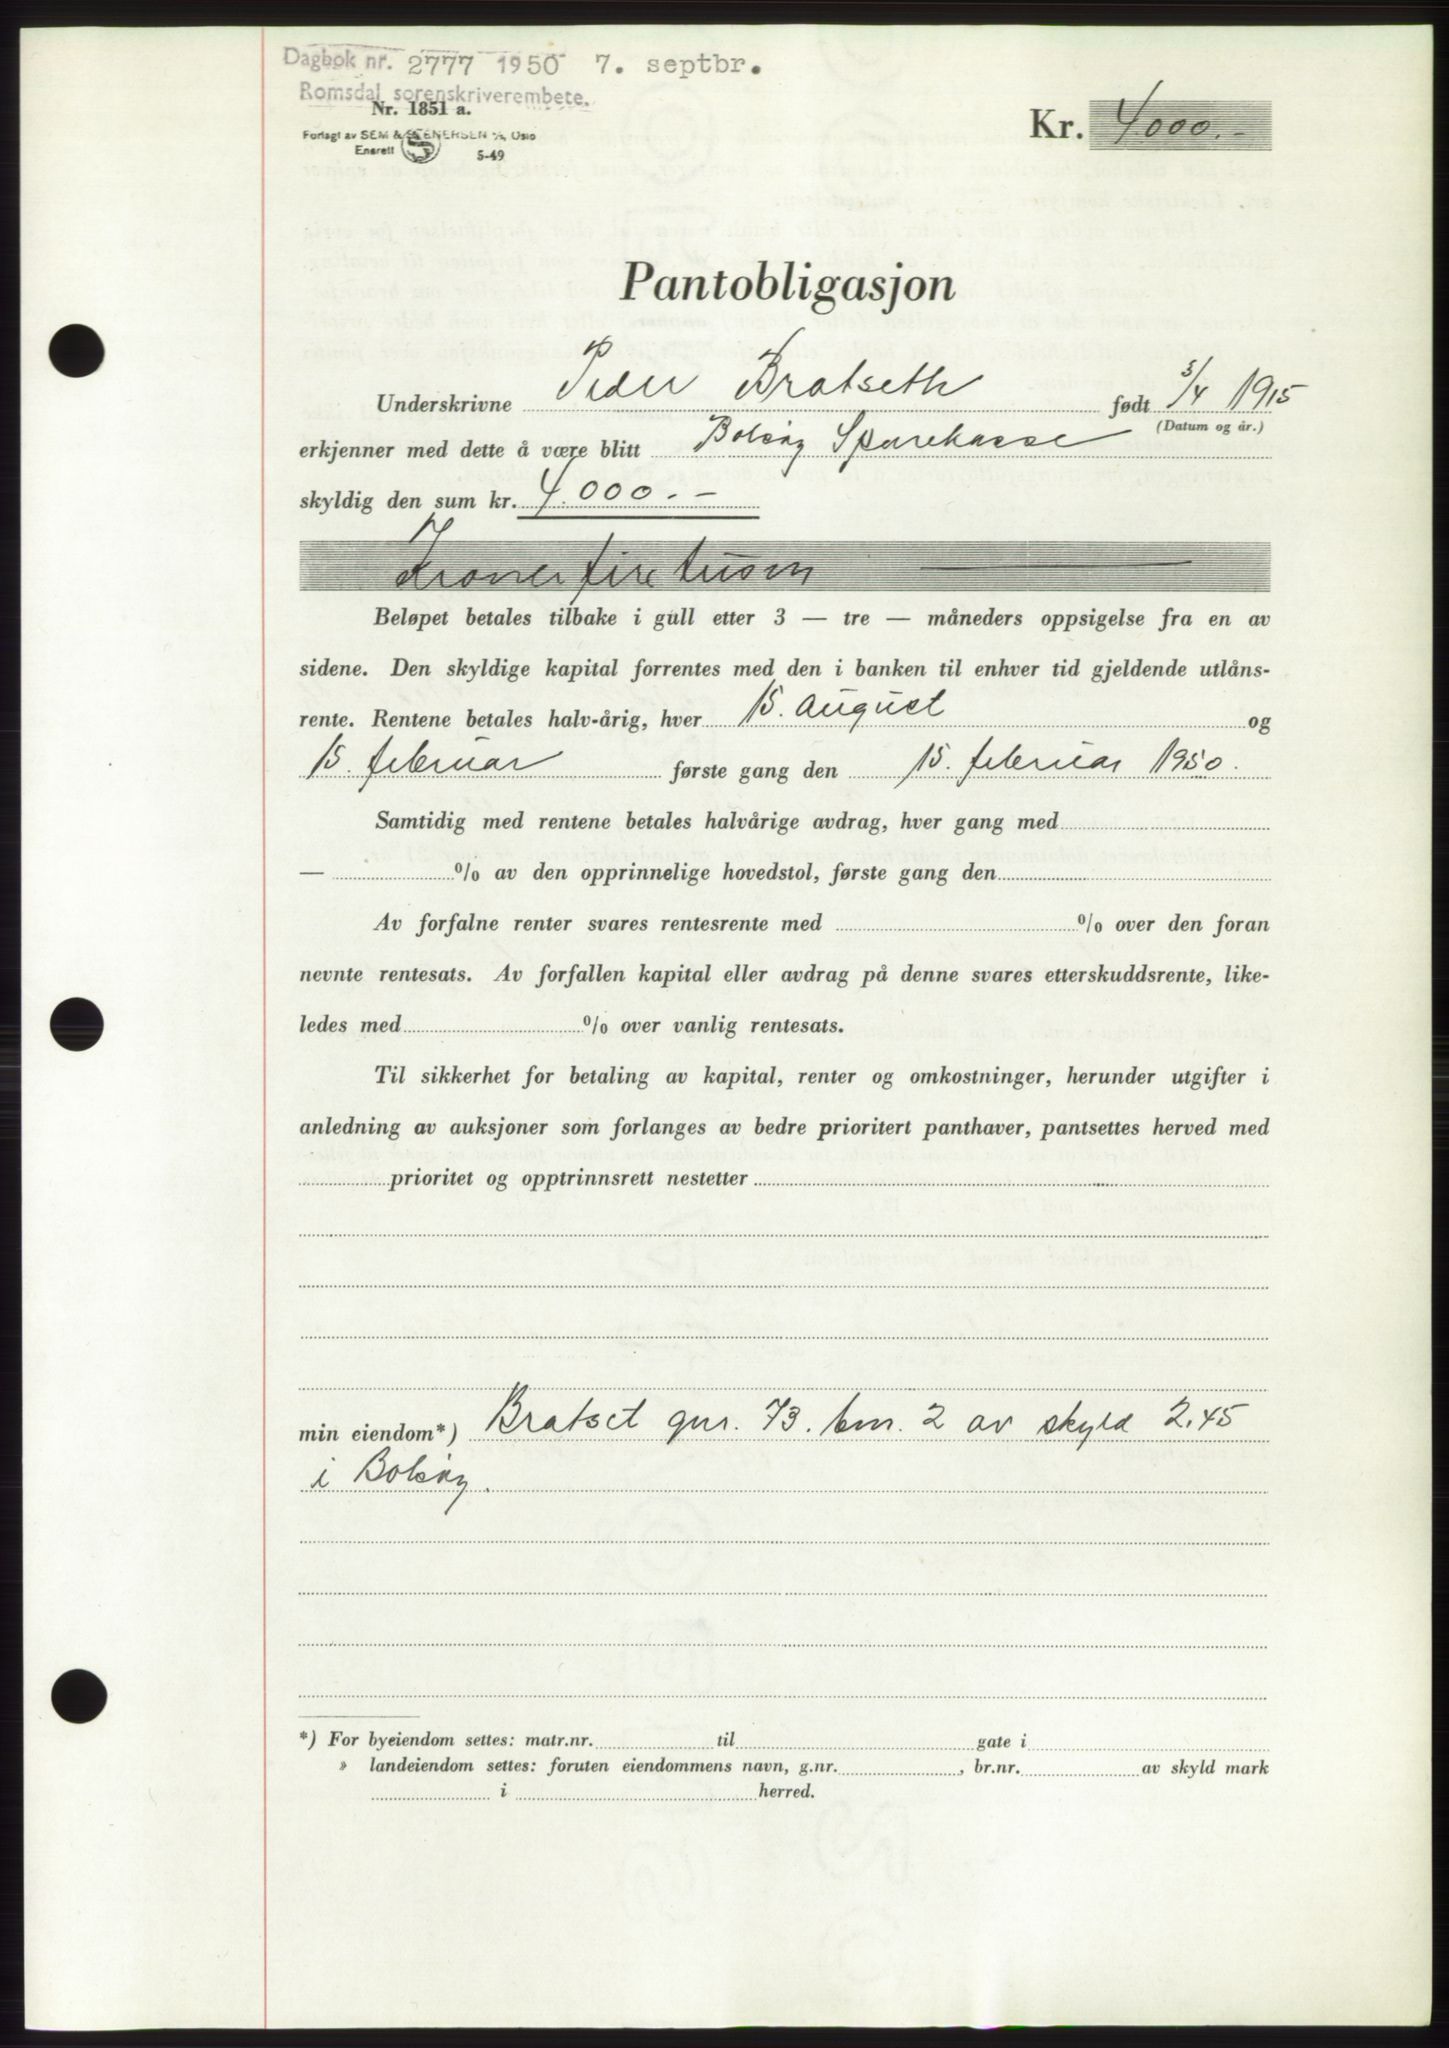 Dagbok nr. 2777 1950 7. septbr.
Romsdal sorenskriverembete.
Nr. 1851 a.
Forlagt av SEM & STENERSEN A/S, Oslo
Enerett
5-49
Kr. 4000.-
Pantobligasjon
Underskrivne Peder Bratseth født 5/4 1915
(Datum og år.)
erkjenner med dette å være blitt Bolsøy Sparekasse
skyldig den sum kr. 4.000.-
Kroner fire tusen
Beløpet betales tilbake i gull etter 3 — tre — måneders oppsigelse fra en av
sidene. Den skyldige kapital forrentes med den i banken til enhver tid gjeldende utlåns-
rente. Rentene betales halv-årig, hver 15. august og
15. februar første gang den 15. februar 1950.
Samtidig med rentene betales halvårige avdrag, hver gang med
— % av den opprinnelige hovedstol, første gang den
Av forfalne renter svares rentesrente med % over den foran
nevnte rentesats. Av forfallen kapital eller avdrag på denne svares etterskuddsrente, like-
ledes med % over vanlig rentesats.
Til sikkerhet for betaling av kapital, renter og omkostninger, herunder utgifter i
anledning av auksjoner som forlanges av bedre prioritert panthaver, pantsettes herved med
prioritet og opptrinnsrett nestetter
min eiendom*) Bratset gnr. 73. bnr. 2 av skyld 2.45
i Bolsøy.
*) For byeiendom settes: matr.nr. til gate i
» landeiendom settes: foruten eiendommens navn, g.nr. , br.nr. av skyld mark
i herred.